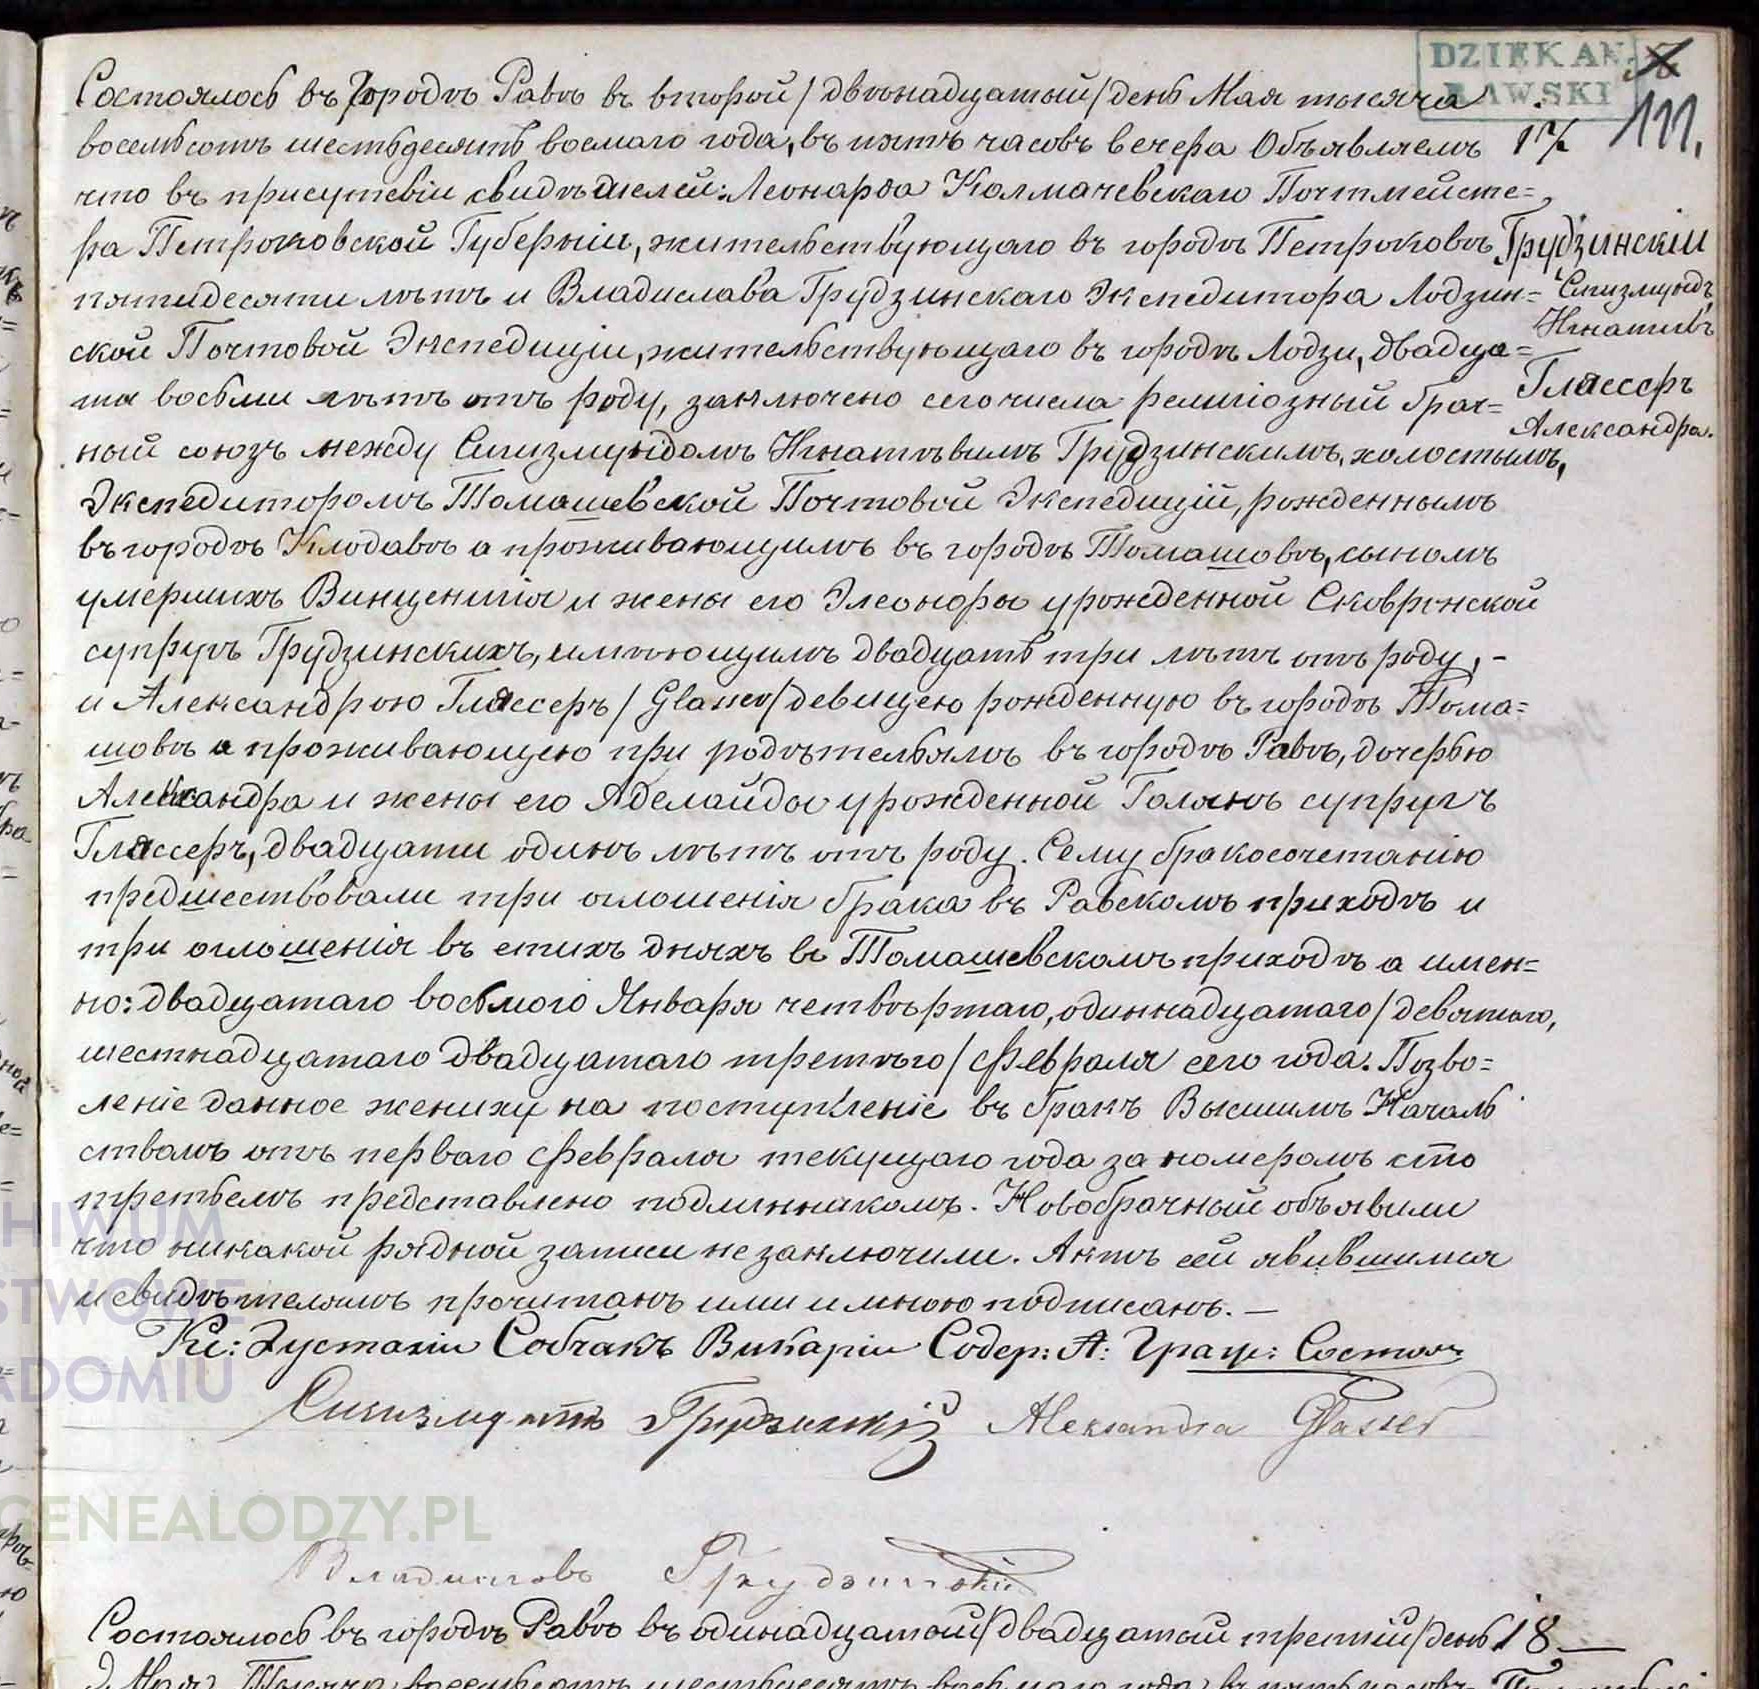 DZIEKAN
RAWSKI
111.
Состоялось въ Городѣ Равѣ въ второй /двѣнадцатый/ день Мая тысяча
восемьсотъ шестьдесятъ восмаго года, въ пять часовъ вечера Объявляемъ
что въ присутсвіи свидѣтелей: Леонарда Колмачевскаго Почтмейсте=
ра Петроковской Губерніи, жительствующаго въ городѣ Петроковѣ
пятидесяти лѣтъ и Владислава Грудзинскаго Экспедитора Лодзин=
ской Почтовой Экспедиціи, жительствующаго въ городѣ Лодзи, двадца=
ти восьми лѣтъ отъ роду, заключено сего числа религіозный брач=
ный союзъ между Сигизмундомъ Игнатѣвимъ Грудзинскимъ, холостымъ,
Экспедиторомъ Томашевской Почтовой Экспедицій, рожденнымъ
въ городѣ Клодавѣ а проживающимъ въ городѣ Томашовѣ, сыномъ
умершихъ Винценція и жены его Элеоноры урожденной Сковронской
супруг Грудзинскихъ, имѣющимъ двадцать три лѣтъ отъ роду, -
и Александрою Глассеръ /Glasser/ девицею рожденную въ городѣ Тома=
шовѣ а проживающею при родѣтельямъ въ городѣ Равѣ, дочерью
Александра и жены его Аделайды урожденной Голянъ супругъ
Глассеръ, двадцати одинъ лѣтъ отъ роду. Сему бракосочетанію
предшествовали три оглошенія брака въ Равскомъ приходѣ и
три оглошенія въ етихъ дняхъ въ Томашевскомъ приходѣ а имен=
но: двадцатаго восьмого Января четвѣртаго, одиннадцатаго /девятаго,
шестнадцатаго двадцатаго третьего/ Февраля сего года. Позво=
леніе данное жениху на поступленіе въ бракъ Высшимъ Началь
ствомъ отъ перваго Февраля текущаго года за номеромъ сто
третьемъ представлено подлинникомъ. Новобрачный объявили
что никакой рядной записи не заключили. Актъ сей явившимся
и свидѣтелямъ прочитанъ ими и мною подписанъ. —
Кс: Эустахіи Собчакъ Викаріи Содер: А: Граж: Состоян
Сигизмунтъ Грудзинскій Aleksandra Glasser
Владиславъ Грудзинскій
17
Грудзинскіи
Сигизмундъ
Игнативъ
Глассеръ
Александра.
Состоялось въ городѣ Равѣ въ одинадцатый/двадцатый третій/день 18
HIWUM
STWOWE
ADOMIU
GENEALODZY.PL